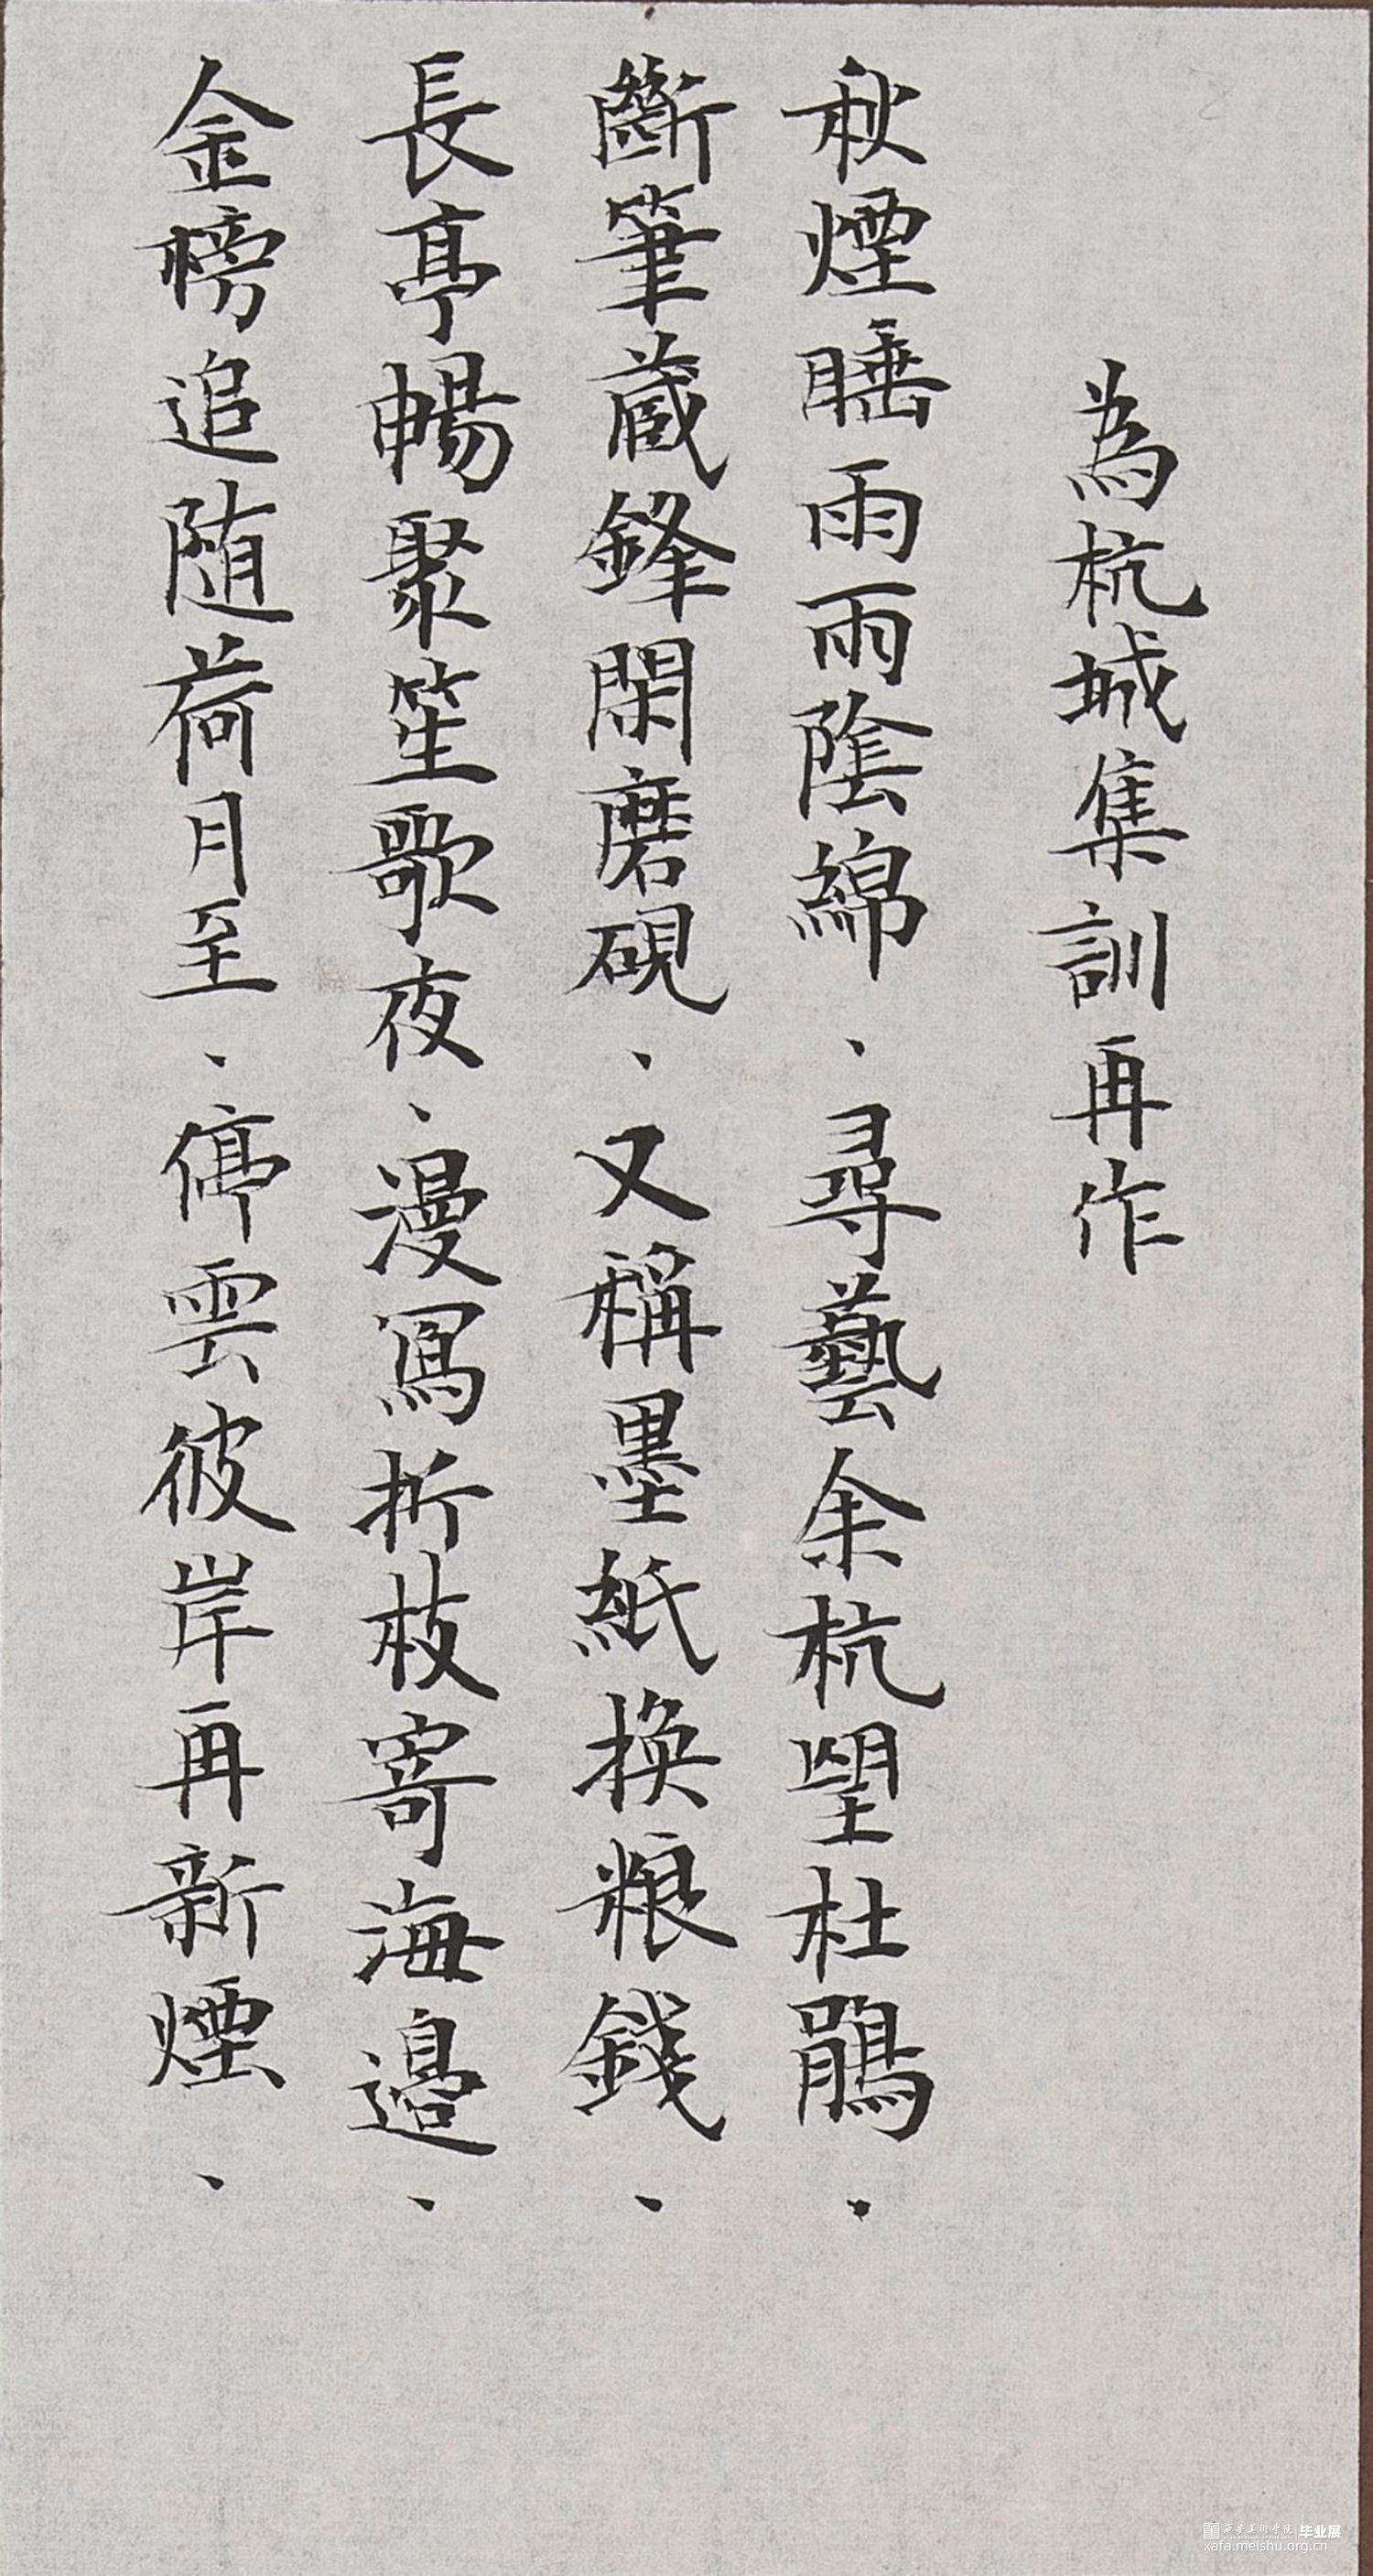 為杭城集訓再作
秋煙睡雨雨陰綿、尋藝余杭望杜鵑、
斷筆蔵鋒閑磨硯、又稱墨紙換粮錢、
長亭暢聚笙歌夜、漫寫折枝寄海邊、
金榜追随荷月至、停雲彼岸再新煙、
西安美術學院 毕业展
xafa.meishu.org.cn